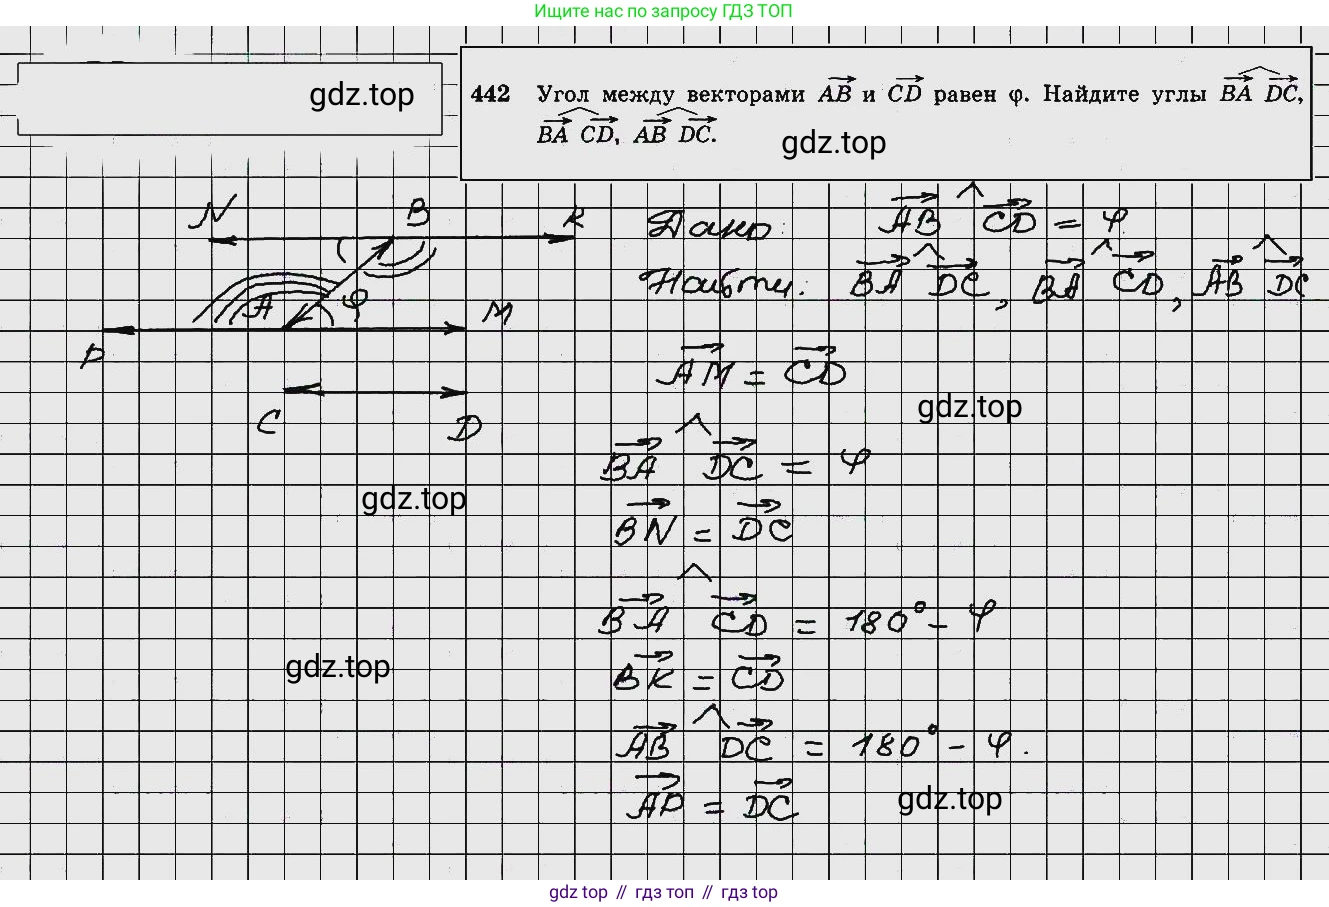 Ищите нас по запросу ГДЗ ТОП
gdz.top
442 Угол между векторами AB и CD равен φ. Найдите углы BA DC,
BA CD, AB DC.
gdz.top
N B K
A φ M
P
C D
Дано: AB CD = φ
Найти: BA DC, BA CD, AB DC
AM = CD
gdz.top
BA DC = φ
gdz.top
BN = DC
BA CD = 180° - φ
gdz.top
BK = CD
AB DC = 180° - φ.
AP = DC
gdz.top
gdz top // гдз топ // gdz top